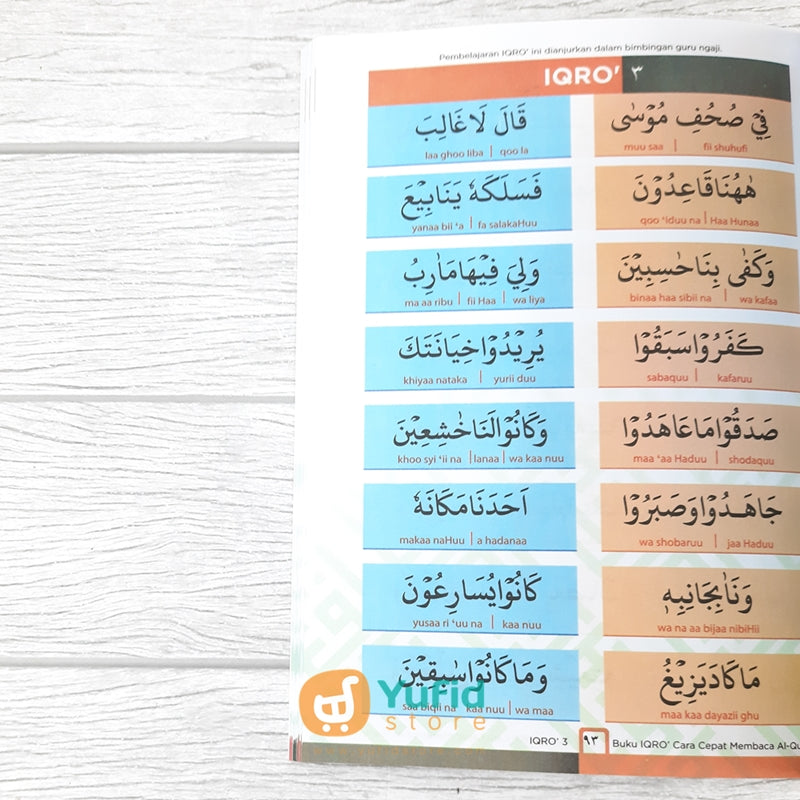 Pembelajaran IQRO' ini dianjurkan dalam bimbingan guru ngaji.
IQRO' ٣
فِيْ صُحُفِ مُوْسٰى
muu saa | fii shuhufi
قَالَ لَا غَالِبَ
laa ghoo liba | qoo la
هٰهُنَا قَاعِدُوْنَ
qoo 'iduu na | Haa Hunaa
فَسَلَكَهٗ يَنَابِيْعَ
yanaa bii 'a | fa salakaHuu
وَكَفٰى بِنَا حٰسِبِيْنَ
binaa haa sibii na | wa kafaa
وَلِيَ فِيْهَا مَاٰرِبُ
ma aa ribu | fii Haa | wa liya
كَفَرُوْا سَبَقُوْا
sabaquu | kafaruu
يُرِيْدُوْا خِيَانَتَكَ
khiyaa nataka | yurii duu
صَدَقُوْا مَا عَاهَدُوْا
maa 'aa Haduu | shodaquu
وَكَانُوْا لَنَا خٰشِعِيْنَ
khoo syi 'ii na | lanaa | wa kaa nuu
جَاهَدُوْا وَصَبَرُوْا
wa shobaruu | jaa Haduu
اَحَدَنَا مَكَانَهٗ
makaa naHuu | a hadanaa
وَنَاٰ بِجَانِبِهٖ
wa na aa bijaa nibiHii
كَانُوْا يُسَارِعُوْنَ
yusaa ri 'uu na | kaa nuu
مَا كَادَ يَزِيْغُ
maa kaa dayazii ghu
وَمَا كَانُوْا سٰبِقِيْنَ
saa biqii na | kaa nuu | wa maa
Yufid
store
IQRO' 3 ٩٣ Buku IQRO' Cara Cepat Membaca